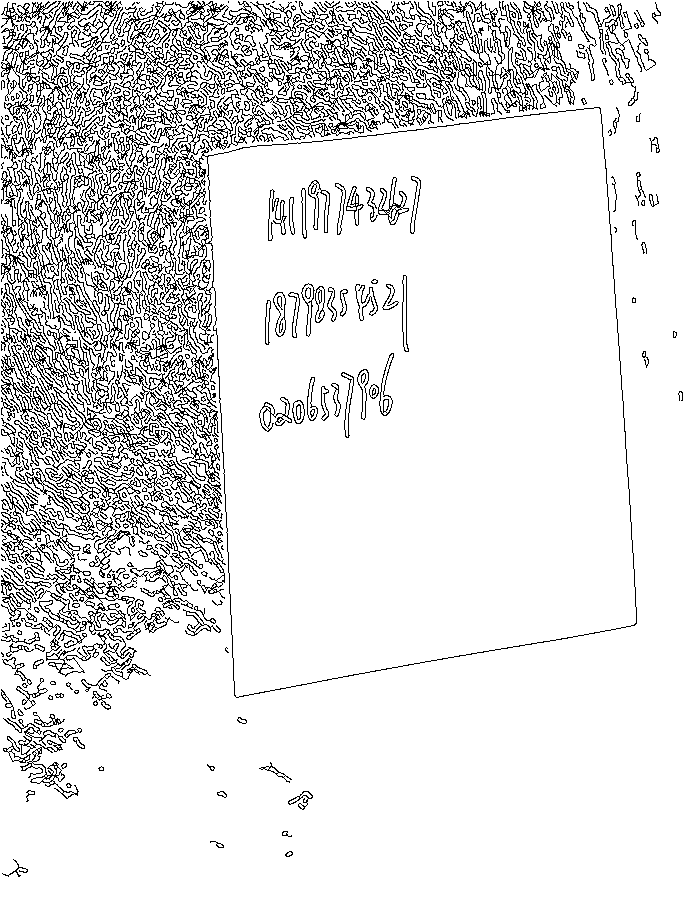 1411977432627
1879835452|
0206537906